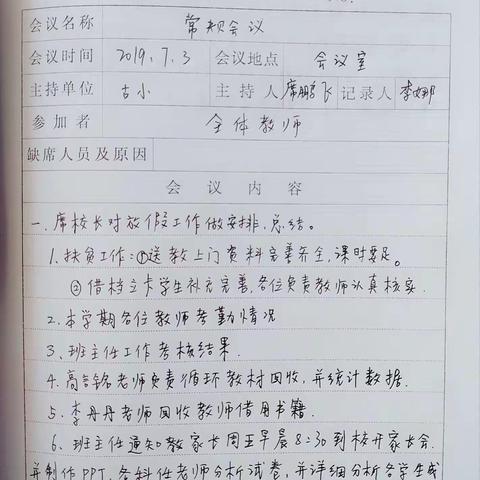 会议名称 常规会议
会议时间 2019、7.3 会议地点 会议室
主持单位 古小 主持人 席鹏飞 记录人 李娜
参加者 全体教师
缺席人员及原因
会议内容
一、席校长对放假工作做安排、总结。
1、扶贫工作:①送教上门资料完善齐全,课时要足。
② 借档立卡学生补充完善,各位负责教师认真核实.
2、本学期各位教师考勤情况
3、班主任工作考核结果.
4、高 老师负责循环教材回收,并统计数据.
5、李丹丹老师回收教师借用书籍.
6、班主任通知教家长周五早晨8:30到校开家长会.
并制作PPT,各科任老师分析试卷,并详细分析各学生成